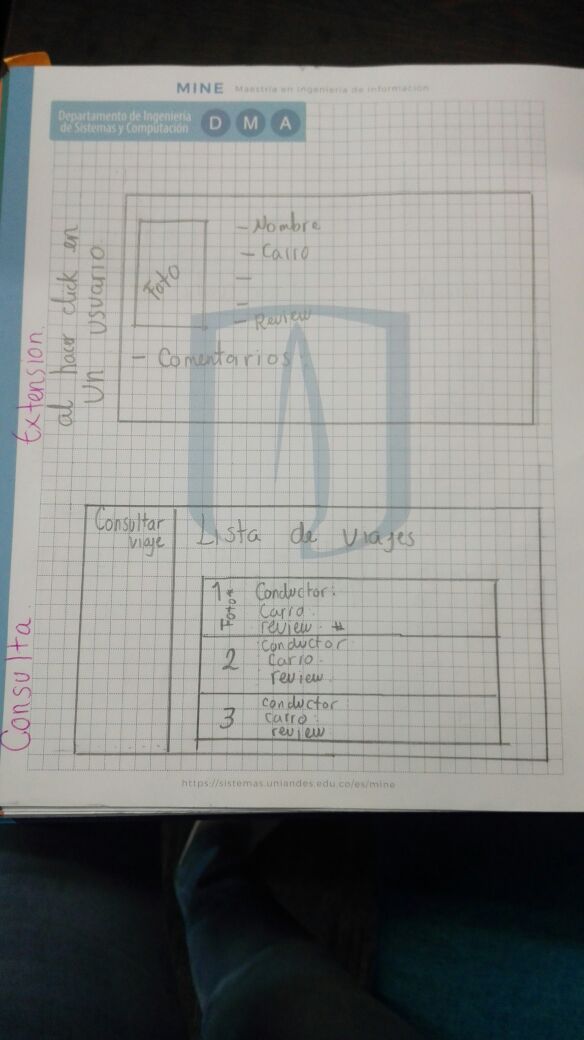 MINE Maestría en Ingeniería de Información
Departamento de Ingeniería
de Sistemas y Computación
D M A
Extension.
al hacer click en
un usuario
Foto
- Nombre
- Carro
-
-
- Review
- Comentarios:
Consulta.
Consultar
viaje
Lista de viajes
1*
Foto
Conductor:
Carro.
review. #
2
Conductor
Carro.
review.
3
conductor:
carro:
review
https://sistemas.uniandes.edu.co/es/mine